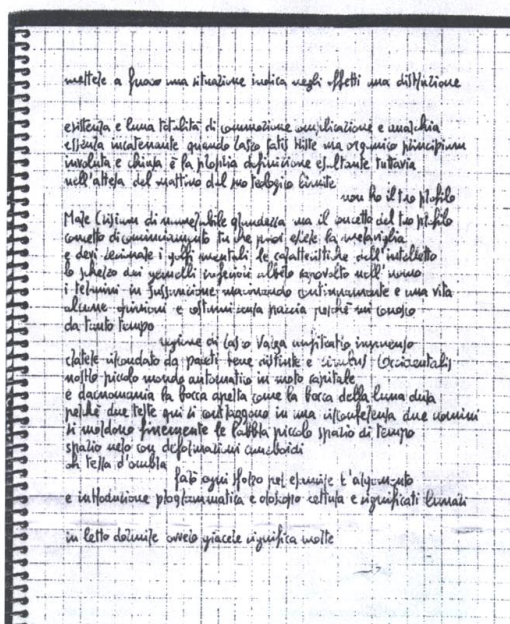 mettere a fuoco una situazione indica negli effetti una distinzione
esistenza e luna totalità di commozione complicazione e
essenza incatenante quando caso fatis triste ma organico principium
involuta e chiusa è la propria definizione esultante tuttavia
nell'attesa del mattino del suo teologico limite
non ho il tuo profilo
Mare Crisium di numerabile grandezza ma il concetto del tuo profilo
concetto di cominciamento tu che puoi essere la meraviglia
e devi decimare i golfi mentali le caratteristiche dell'intelletto
lo scherzo dei gemelli inferiori albero capovolto nell'uomo
i termini in continuamente e una vita
alcune opinioni e costumi senza faccia perché mi conosco
da tanto tempo
ragione di caso vaga immenso
cratere circondato da pareti bene distinte e (Occidentali)
nostro piccolo mondo automatico in moto capitale
e la bocca aperta come la bocca della luna dura
perché due teste qui si contraggono in una circonferenza due uomini
si mordono finemente le labbra piccolo spazio di tempo
spazio nero con deformazioni
oh testa d'ombra
farò ogni sforzo per esaurire l'argomento
e introduzione programmatica e oroscopo cattura e significati lunari
in letto dormire ovvero giacere significa morte